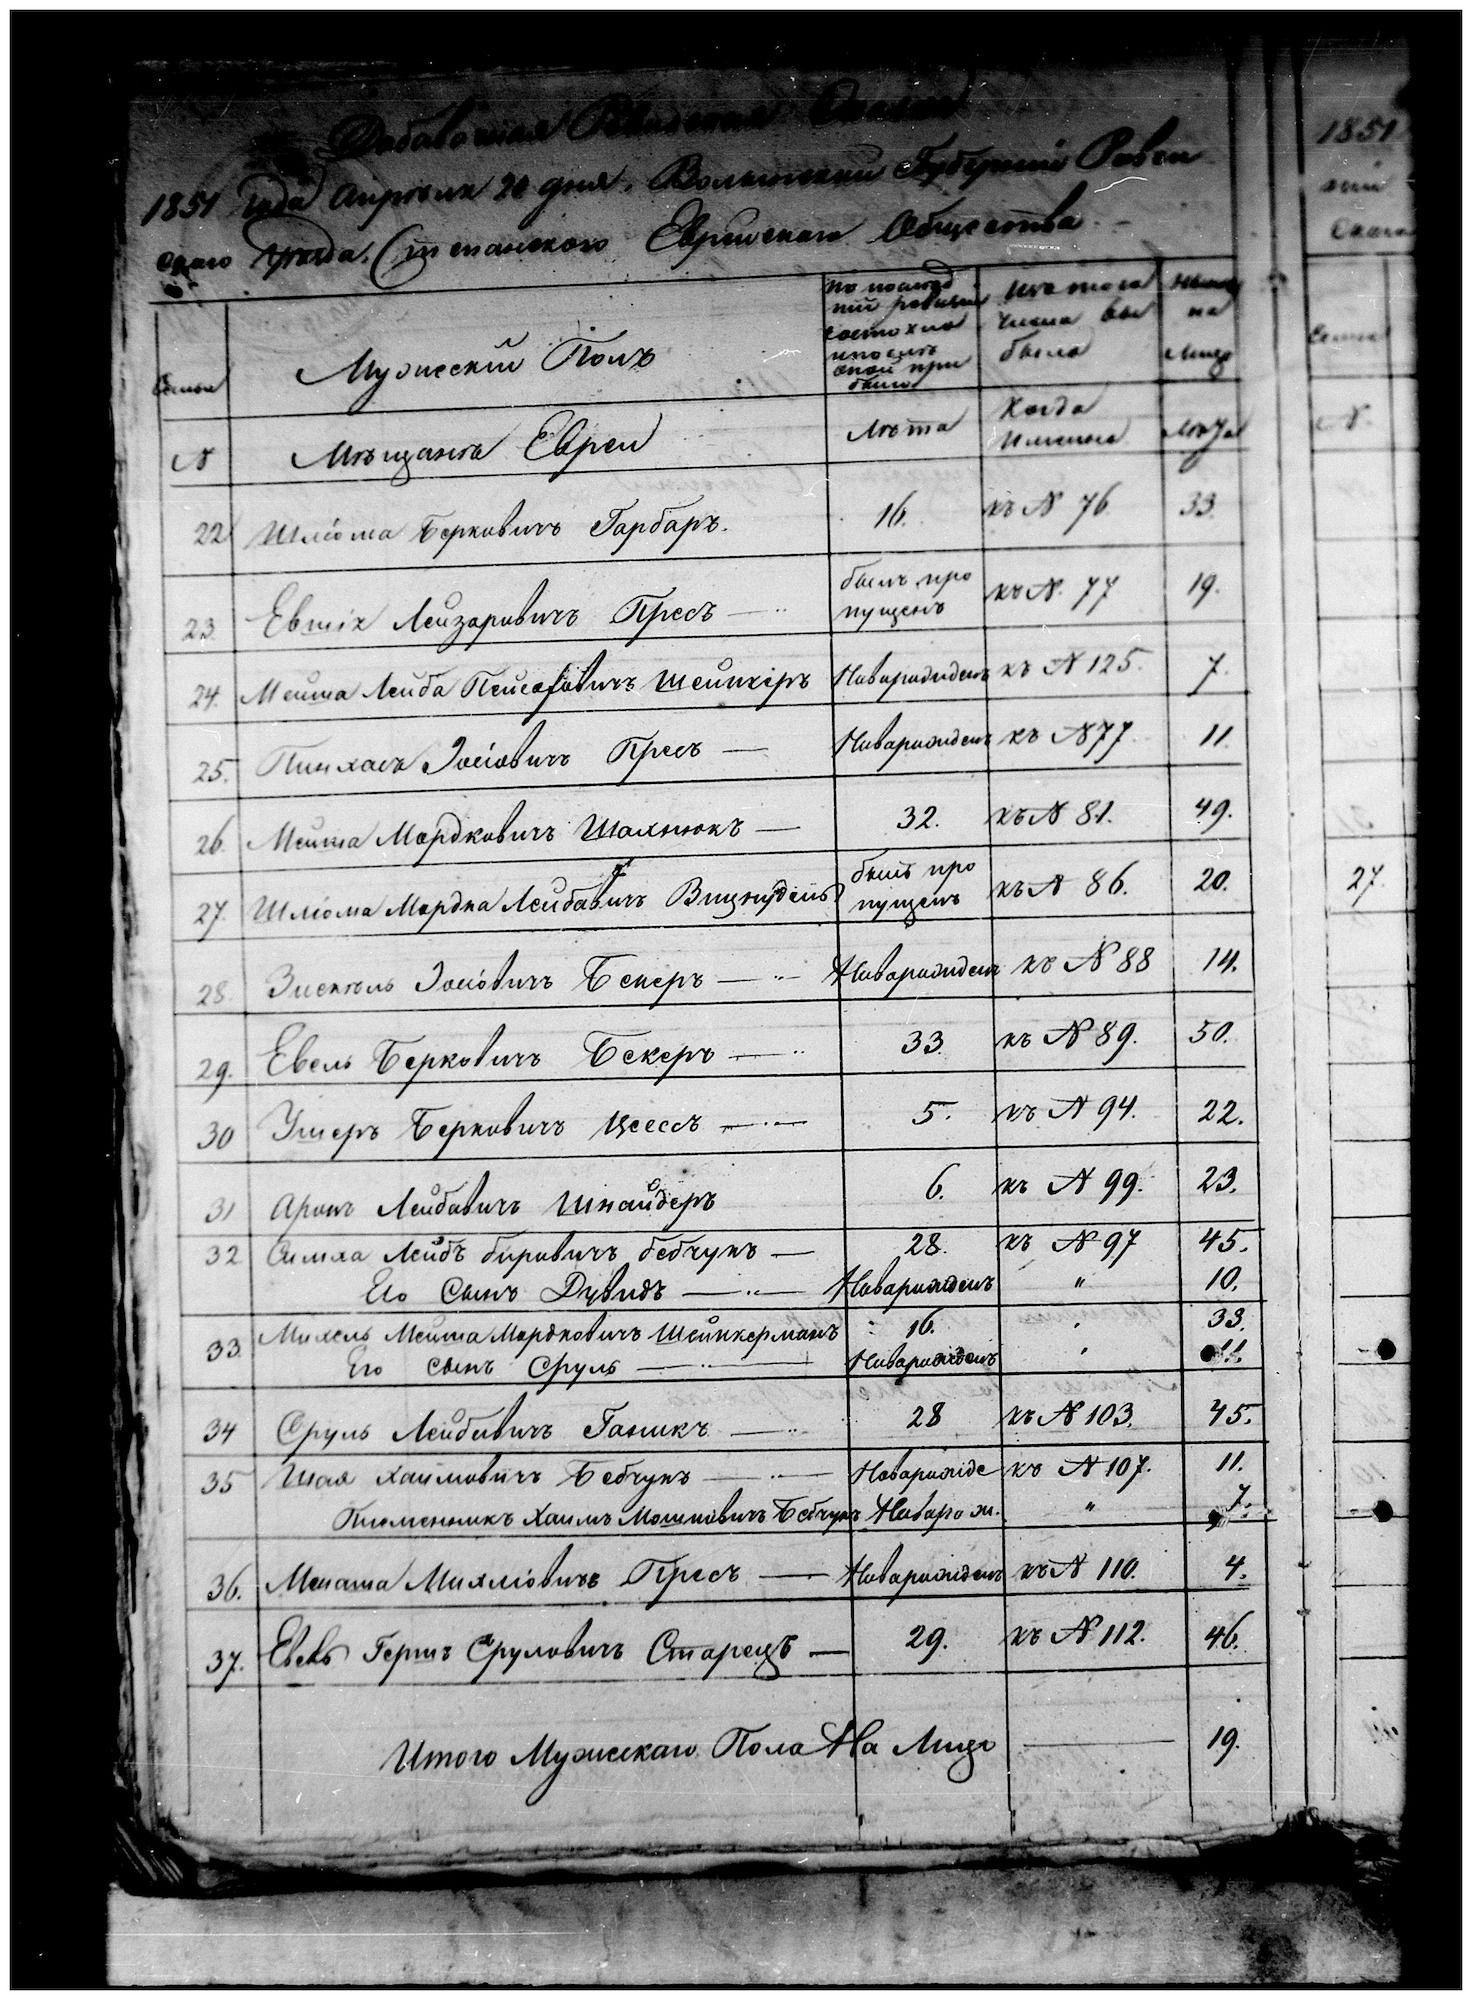 Добавочная Ревизская Сказка
1851 года Апреля 20 дня. Волынской Губернии Ровен
скаго уезда. Степанскаго Еврейскаго Общества
Семьи
Мужескій Полъ
по послед
ней ревизіи
состояло
и после
оной при
было
изъ того
числа вы
было
ныне
на
лицо
N
Мѣщанъ Евреи
Лѣта
Когда
именно
Лѣта
22 Шліома Берковичъ Гарбаръ. 16. къ N 76 33.
23. Евшіх Лейзаровичъ Пресъ былъ про къ N. 77 19.
пущенъ
24. Мейта Лейба Пейсаховичъ Шейнкеръ Новорожденъ къ N 125. 7.
25. Пинхасъ Іосіовичъ Пресъ Новорожденъ къ N 77. 11.
26. Мейта Мордковичъ Шахнюкъ 32. къ N 81. 49.
27. Шліома Мордка Лейбовичъ былъ про къ N 86. 20.
пущенъ
28. Іосіовичъ Бекеръ Новорожденъ къ N 88 14.
29. Евель Берковичъ Бекеръ 33. къ N 89. 50.
30 Ушеръ Берковичъ Цеессъ 5. къ N 94. 22.
31 Аронъ Лейбовичъ Шнайдеръ 6. къ N 99. 23.
32 Симха Лейбъ Бебчукъ 28. къ N 97 45.
Его сынъ Дувидъ Новорожденъ " 10.
33. Михель Мейта Мордковичъ Шейнкерманъ 16. " 33.
Его сынъ Сруль Новорожденъ " 11.
34 Сруль Лейбовичъ Ганикъ 28 къ N 103. 45.
35 Шая Хаимовичъ Бебчукъ Новорожде къ N 107. 11.
Племенникъ Хаимъ Мошковичъ Бебчукъ Новорож. " 7.
36. Менаша Михліовичъ Пресъ Новорожденъ къ N 110. 4.
37. Евель Гершъ Сруловичъ Старецъ 29. къ N 112. 46.
Итого Мужескаго Пола На Лицо 19.
1851
Семьи
N.
27.